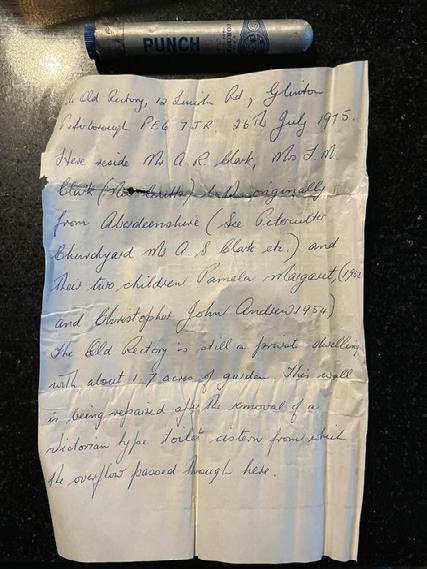 PUNCH
The Old Rectory, 12 Lincoln Rd., Glinton
Peterborough PE6 7JR. 26th July 1975.
Here reside Mr A. R. Clark, Mrs J. M.
Clark ( both originally
from Aberdeenshire (See Peterculter
Churchyard Mr A S Clark etc.) and
their two children Pamela Margaret, (1952
and Christopher John Andrew 1954)
The Old Rectory is still a private dwelling
with about 1.7 acres of garden. This wall
is being repaired after the removal of a
Victorian type toilet cistern from which
the overflow passed through here.